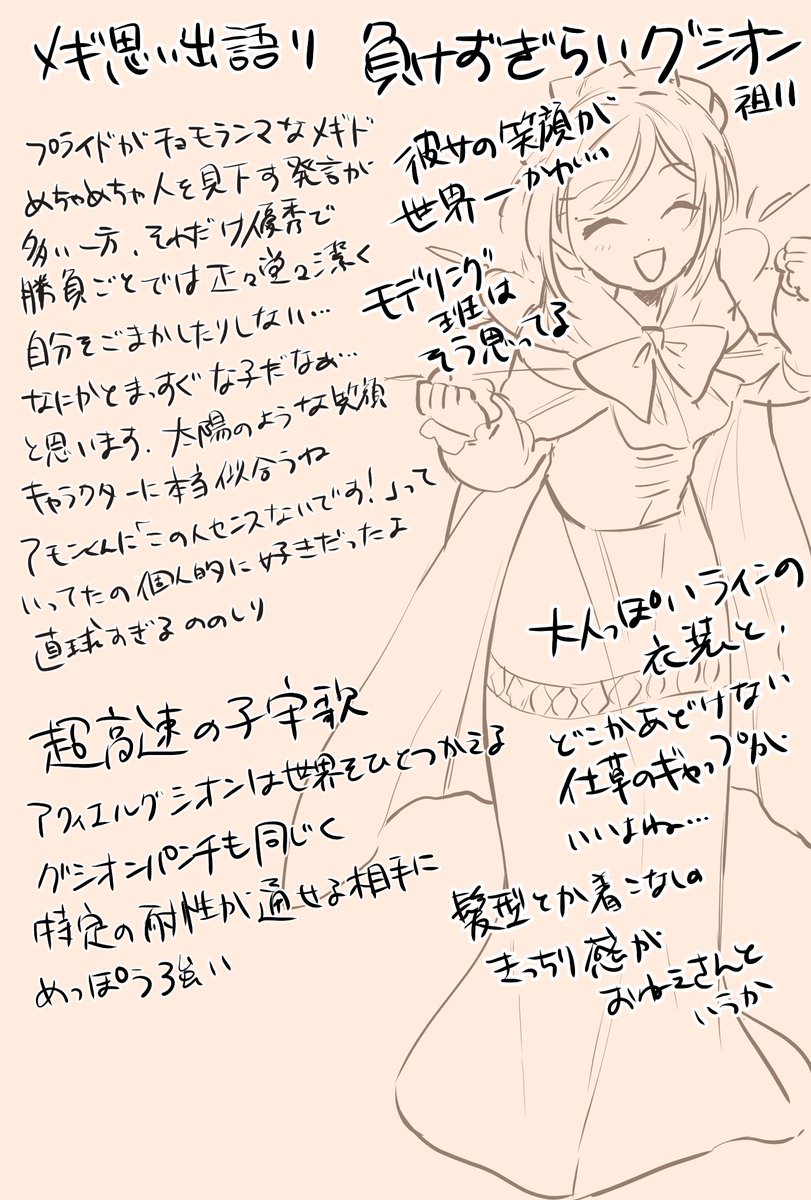 メギ思い出語り 負けずぎらいグシオン
祖11
プライドがチョモランマなメギド
めちゃめちゃ人を見下す発言が
多い一方、それだけ優秀で
勝負ごとでは正々堂々潔く
自分をごまかしたりしない…
なにかとまっすぐな子だなぁ…
と思います。太陽のような笑顔
キャラクターに本当似合うね
アモンくんに「この人センスないです!」って
いってたの個人的に好きだったよ
直球すぎるののしり
彼女の笑顔が
世界一かわいい
モデリング
班は
そう思ってる
超高速の子守歌
アクィエルグシオンは世界をひとつかえる
グシオンパンチも同じく
特定の耐性が通せる相手に
めっぽう強い
大人っぽいラインの
衣装と、
どこかあどけない
仕草のギャップが
いいよね…
髪型とか着こなしの
きっちり感が
おねえさんと
いうか